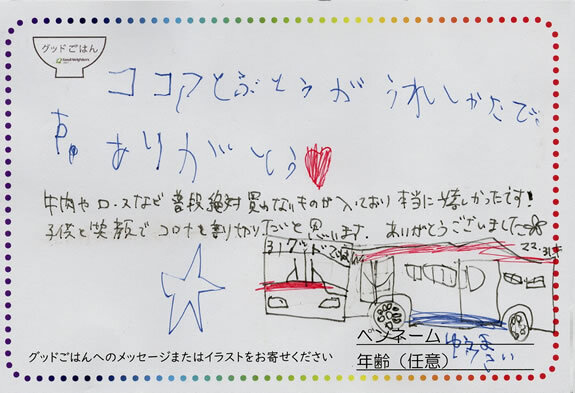 グッドごはん
Good Neighbors
ココアとぶとうがうれしかたで
す。ありがとう
牛肉やロースなど普段絶対買えないものが入っており本当に嬉しかったです!
子供と笑顔でコロナを乗り切りたいと思います. ありがとうございました
317グッドごはん
グッドごはんへのメッセージまたはイラストをお寄せください
ペンネーム
年齢(任意) さい